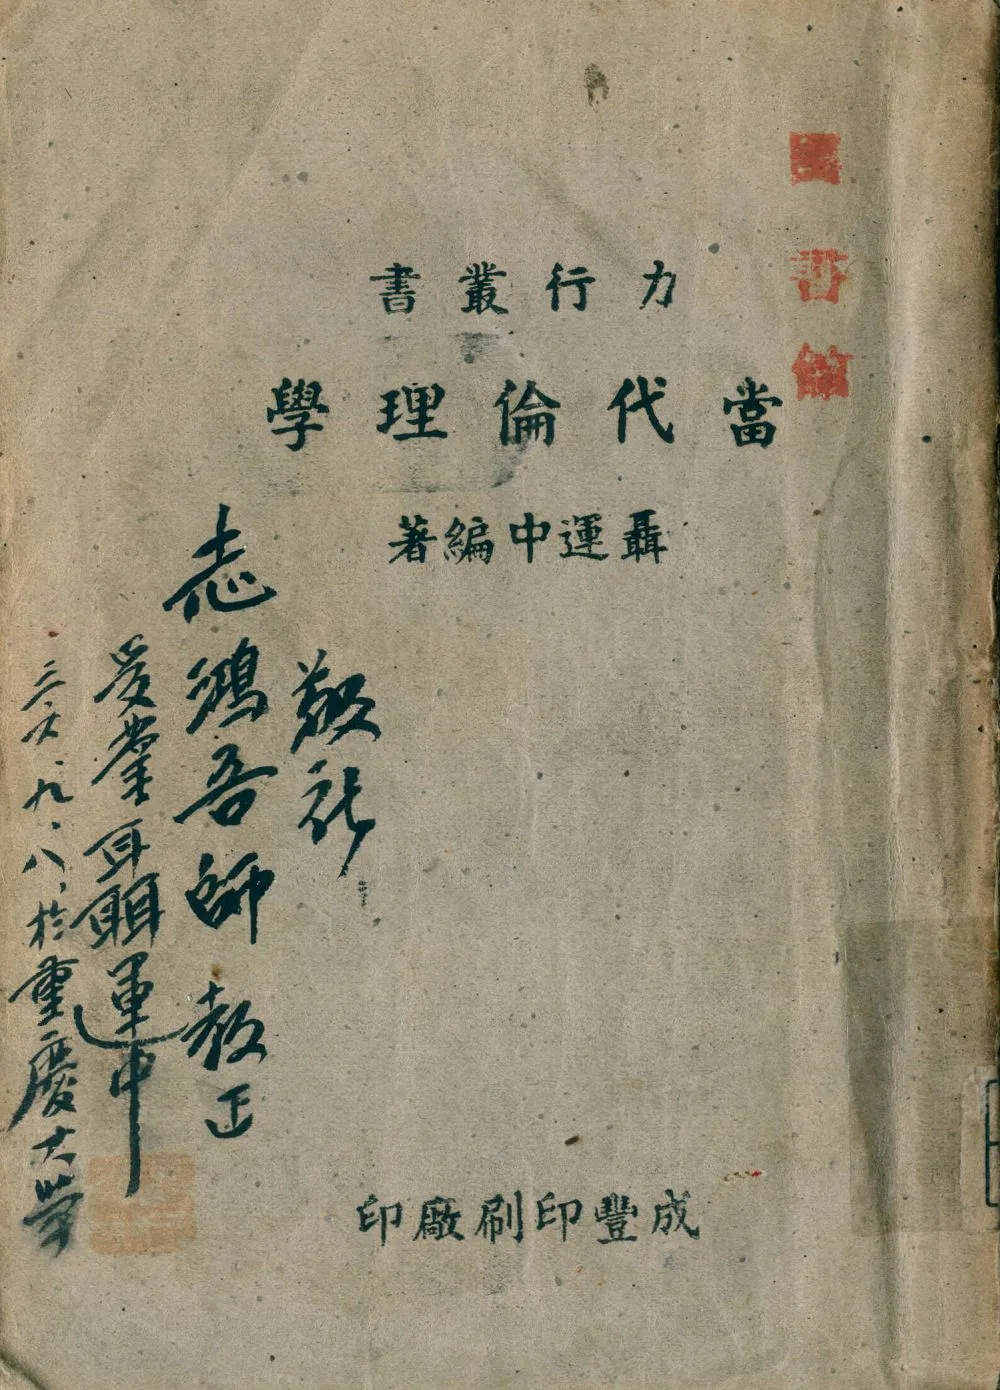 力行叢書
當代倫理學
聶運中編著
敬祈
志鴻吾師教正
受業聶運中
三六、九、八、於重慶大學
成豐印刷廠印
圖書館